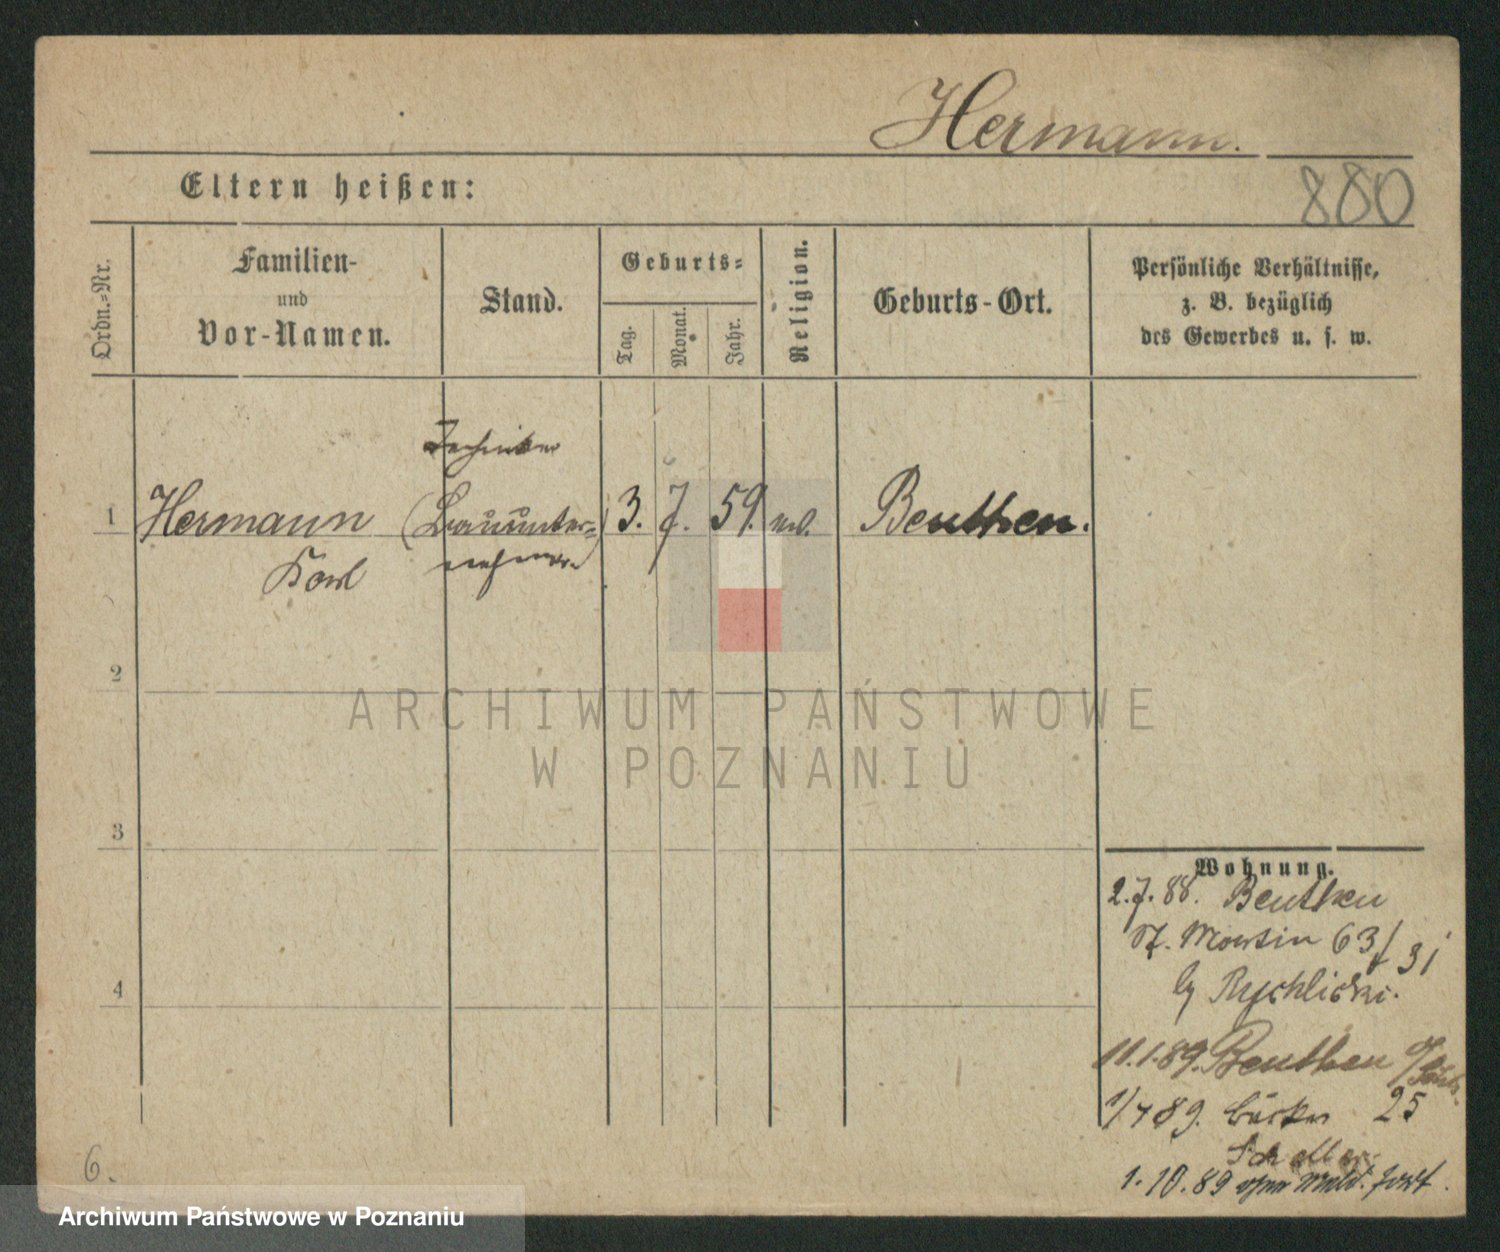 Hermann.
880
Eltern heißen:
Ordn.-Nr.
Familien-
und
Vor-Namen.
Stand.
Geburts-
Tag.
Monat.
Jahr.
Religion.
Geburts-Ort.
Persönliche Verhältnisse,
z. B. bezüglich
des Gewerbes u. s. w.
Techniker
1 Hermann (Bauunter- 3. 7. 59. Beuthen.
Karl nehmer)
2
3
4
ARCHIWUM PAŃSTWOWE
W POZNANIU
Wohnung.
2.7.88. Beuthen
St. Martin 63/31
Rychlicki.
11.1.89. Beuthen
1/4 89. Bäcker 25
1.10.89 ohne Meld. fort.
6.
Archiwum Państwowe w Poznaniu